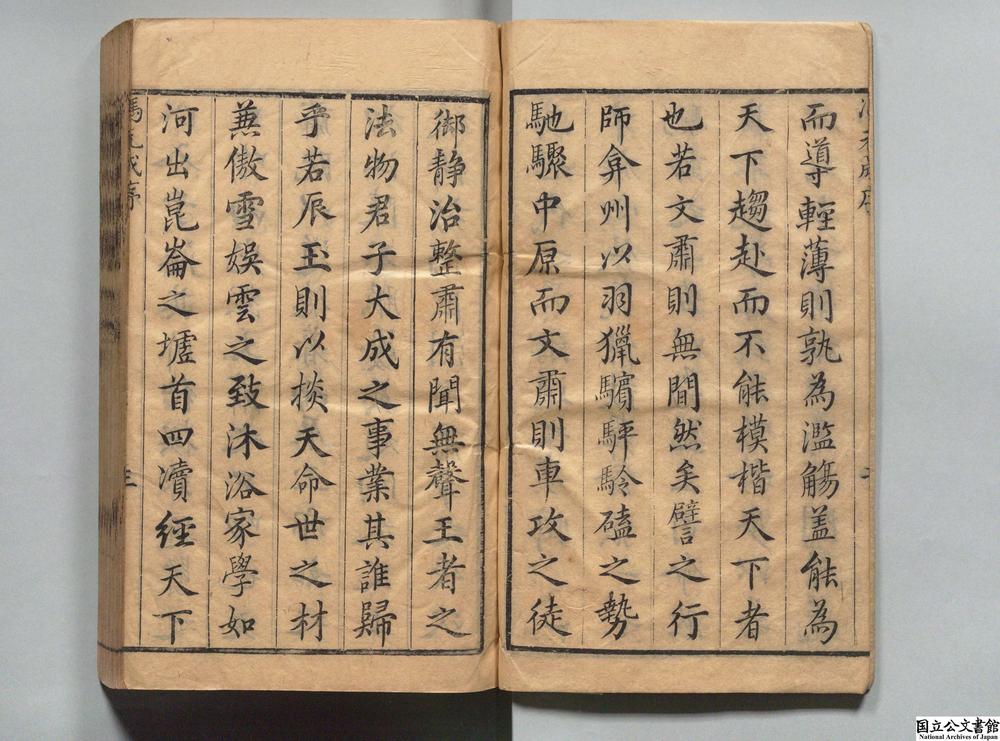 而導輕薄則孰為濫觴盖能為
天下趨赴而不能模楷天下者
也若文肅則無間然矣譬之行
師弇州以羽獵驞駍駖磕之勢
馳驟中原而文肅則車攻之徒
御静治整肅有聞無聲王者之
法物君子大成之事業其誰歸
乎若辰玉則以掞天命世之材
蒹傲雪娛雲之致沐浴家學如
河出崑崙之墟首四瀆經天下
馮元成序
三
国立公文書館
National Archives of Japan